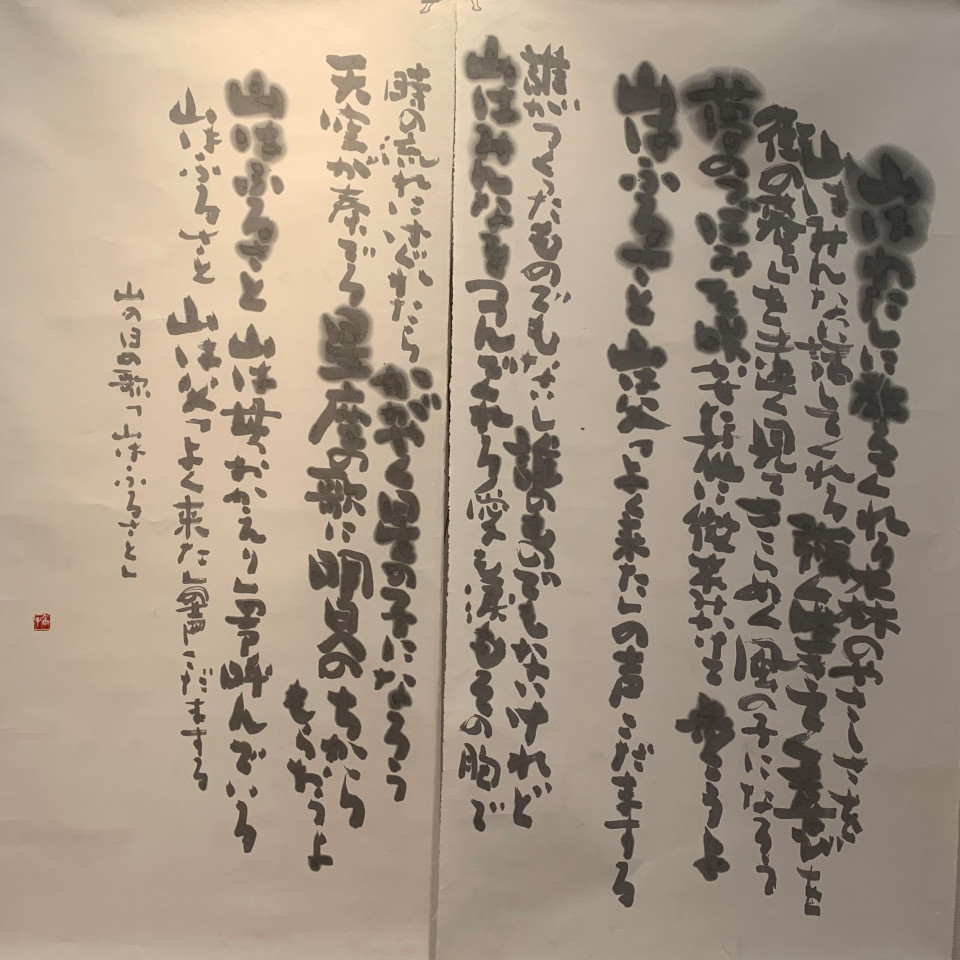 山はわたしに教えてくれる
山はみんなに話してくれる 強く生きてく喜びを
街の暮らしを遠く見て きらめく風の子になろう
夢のつぼみ 歩こうよ
山はふるさと 山は父「よく来た」の声こだまする
誰がつくったものでもないし 誰のものでもないけれど
山はみんなを包んでくれる 愛も涙もその胸で
時の流れにはぐれたら かがやく星の子になろう
天空が奏でる星座の歌に 明日のちから
もらおうよ
山はふるさと 山は母「おかえり」の声呼んでいる
山はふるさと 山は父「よく来な」の声こだまする
山の日の歌「山はふるさと」